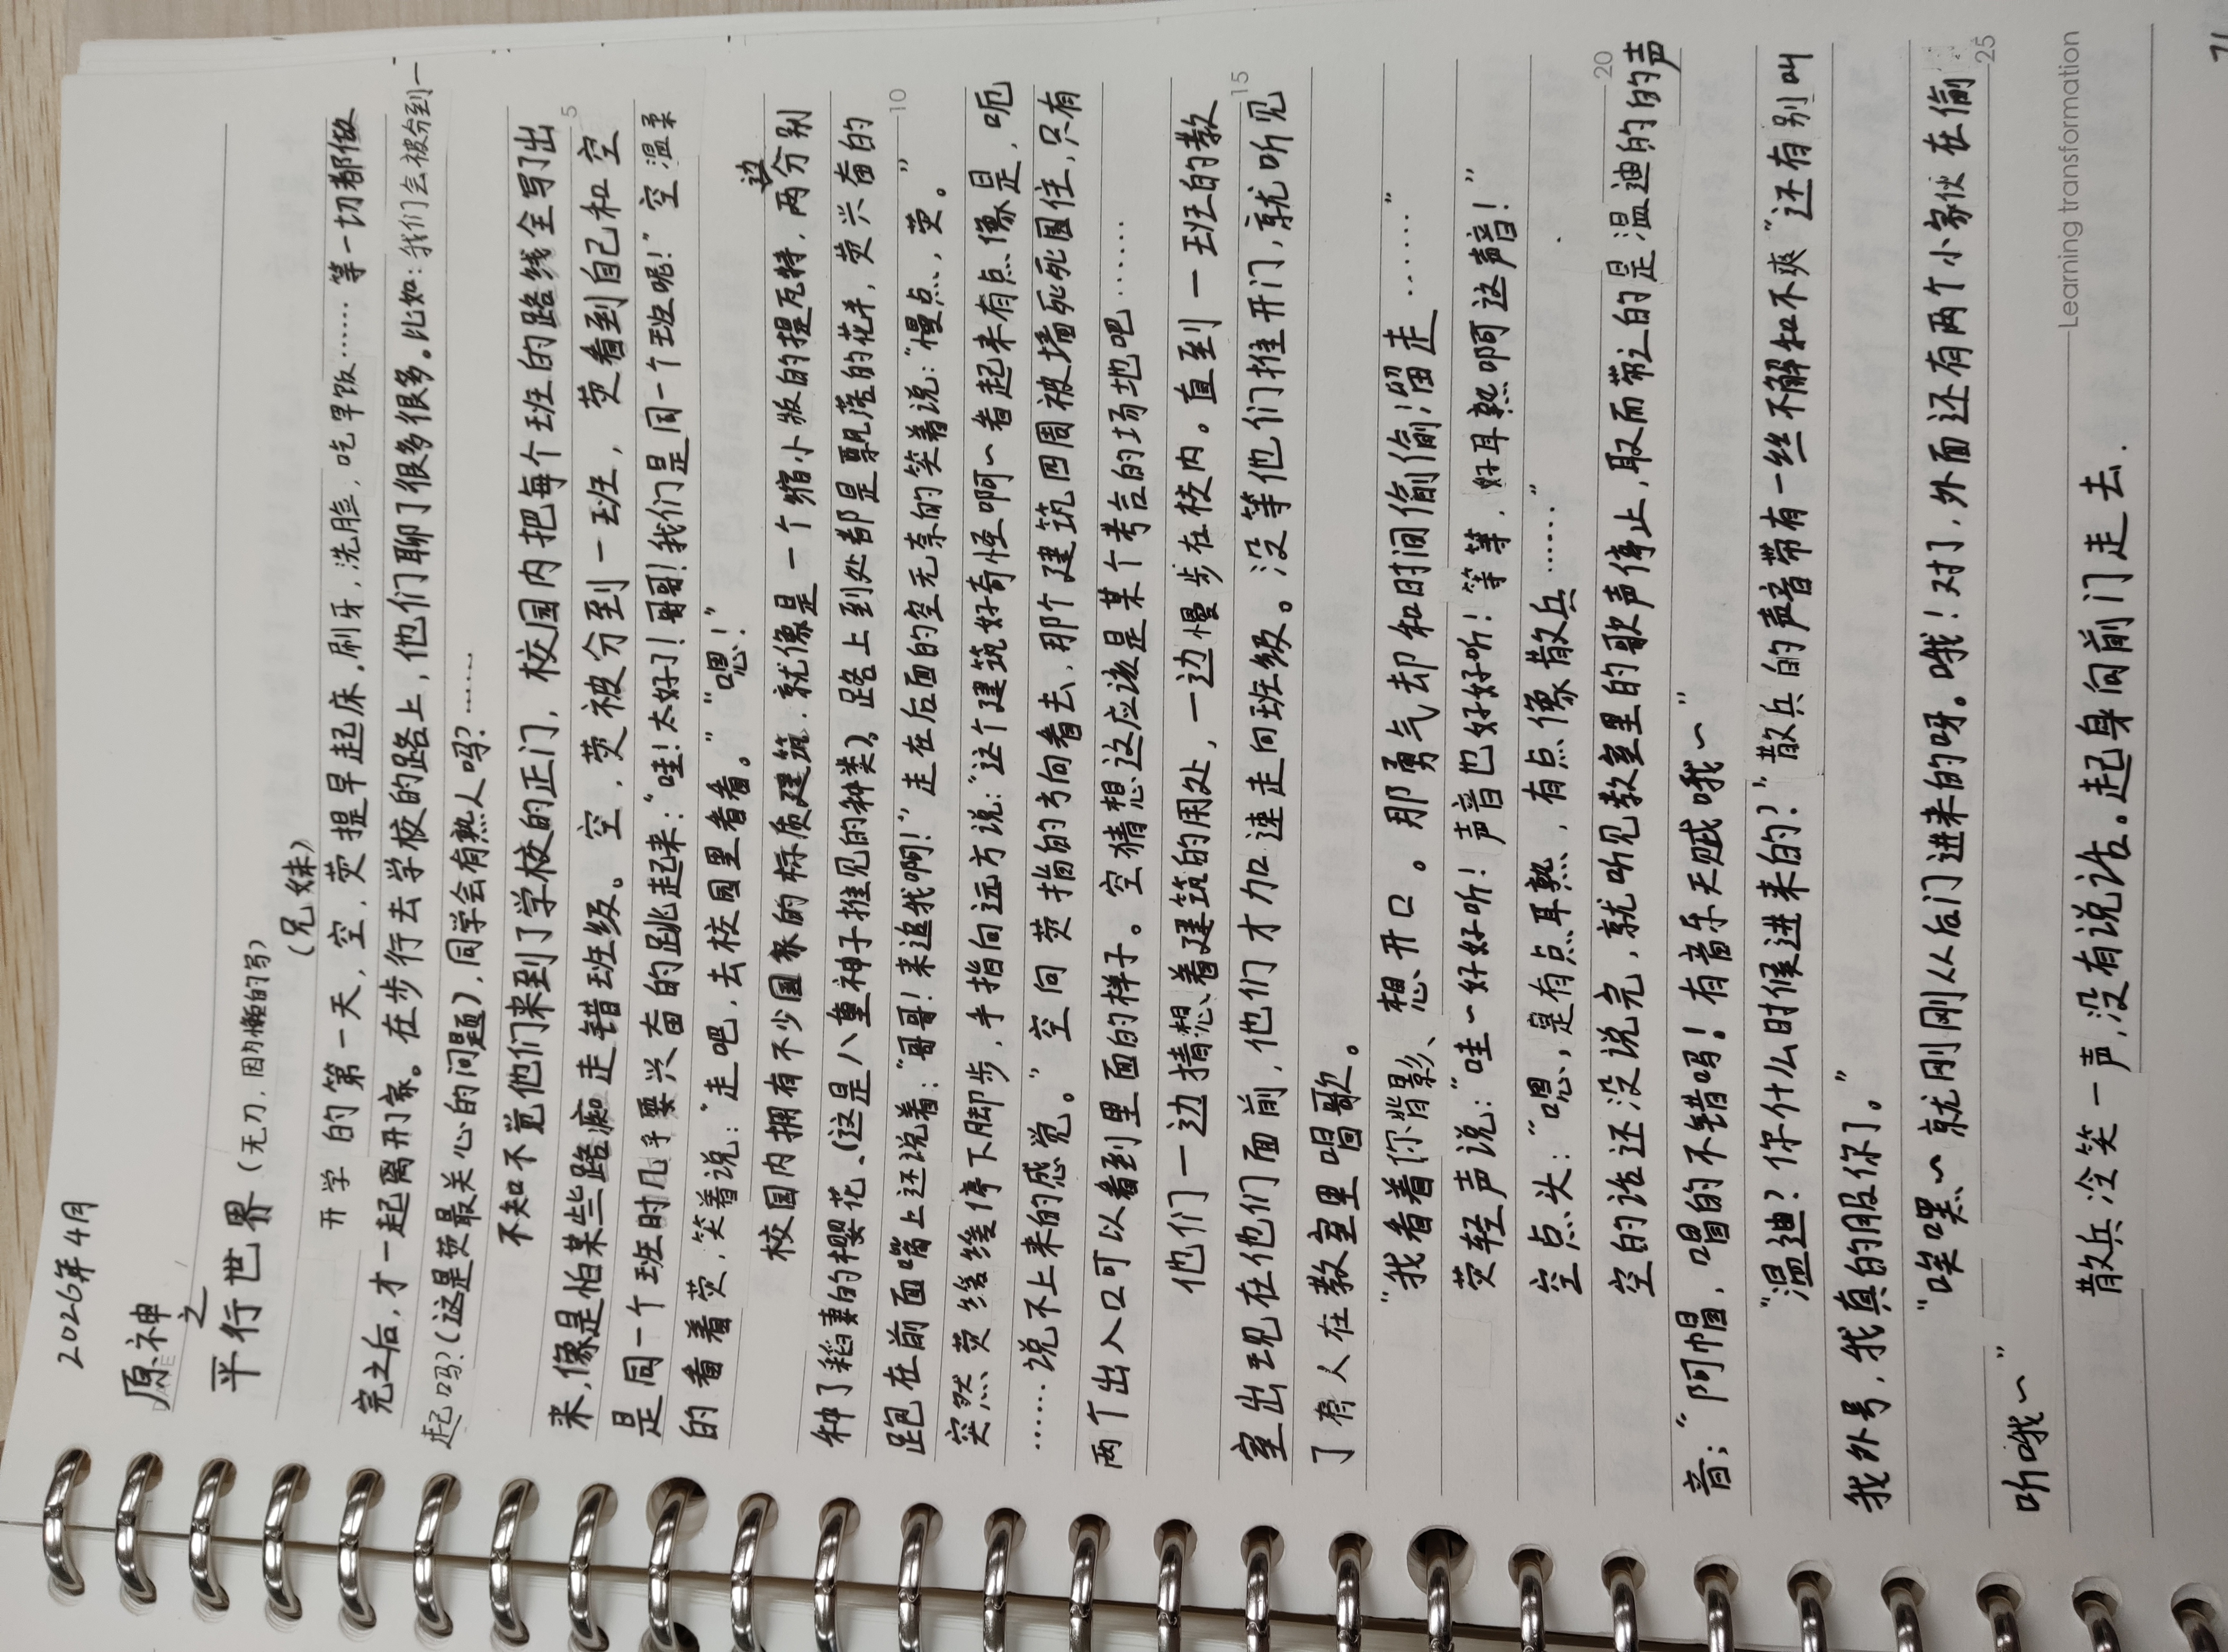 2026年4月
原神
之
平行世界(无刀,因为懒的写)
(兄妹)
开学的第一天,空,荧提早起床,刷牙,洗脸,吃早饭……等一切都做
完之后,才一起离开家。在步行去学校的路上,他们聊了很多很多。比如:我们会被分到一
起吗?(这是荧最关心的问题),同学会有熟人吗?……
不知不觉他们来到了学校的正门,校园内把每个班的路线全写了出
5
来,像是怕某些路痴走错班级。空,荧被分到一班,荧看到自己和空
是同一个班时几乎要兴奋的跳起来:“哇!太好了!哥哥!我们是同一个班呢!”空温柔
的看着荧,笑着说:“走吧,去校园里看看。”“嗯!”
校园内拥有不少国家的标质建筑,就像是一个缩小版的提瓦特,两边分别
种了稻妻的樱花、(这是八重神子推见的种类)。路上到处都是飘落的花半,荧兴奋的
10
跑在前面嘴上还说着:“哥哥!来追我啊!”走在后面的空无奈的笑着说:“慢点,荧。”
突然荧缓缓停下脚步,手指向远方说:“这个建筑好奇怪啊~看起来有点像是,呃
……说不上来的感觉。”空向荧指的方向看去,那个建筑四周被墙死死围住,只有
两个出入口可以看到里面的样子。空猜想这应该是某个考古的场地吧……
他们一边猜想着建筑的用处,一边慢步在校内。直到一班的教
15
室出现在他们面前,他们才加速走向班级。没等他们推开门,就听见
了有人在教室里唱歌。
“我看着你背影、想开口。那勇气却和时间偷偷溜走……”
荧轻声说:“哇~好好听!声音也好好听!等等,好耳熟啊这声音!”
空点头:“嗯,是有点耳熟,有点像散兵……”
20
空的话还没说完,就听见教室里的歌声停止,取而带之的是温迪的的声
音:“阿帽,唱的不错吗!有音乐天赋哦~”
“温迪?你什么时候进来的?”散兵的声音带有一丝不解和不爽“还有别叫
我外号,我真的服你了。”
“唉嘿~就刚刚从后门进来的呀。哦!对了,外面还有两个小家伙在偷
25
听哦~”
散兵冷笑一声,没有说话。起身向前门走去.
Learning transformation